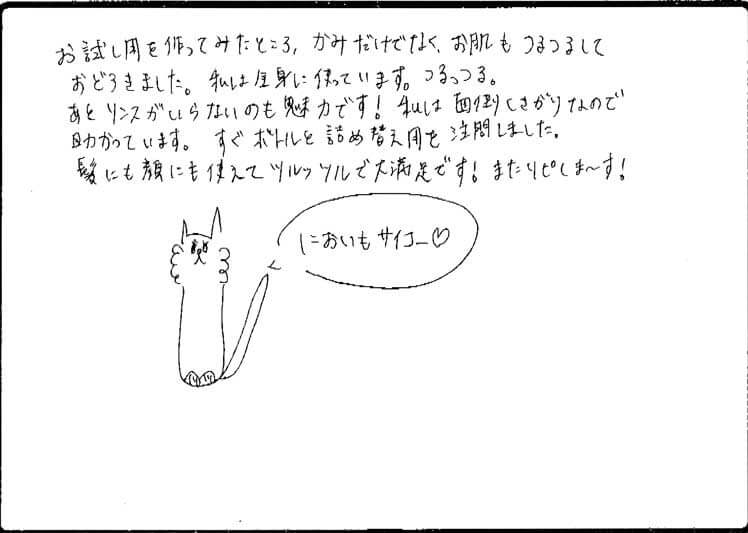 お試し用を作ってみたところ、かみだけでなく、お肌もつるつるして
おどろきました。私は全身に使っています。つるっつる。
あとリンスがいらないのも魅力です！私は面倒くさがりなので
助かっています。すぐボトルと詰め替え用を注問しました。
髪にも顔にも使えてツルッツルで大満足です！またリピしま〜す！
においもサイコー♡